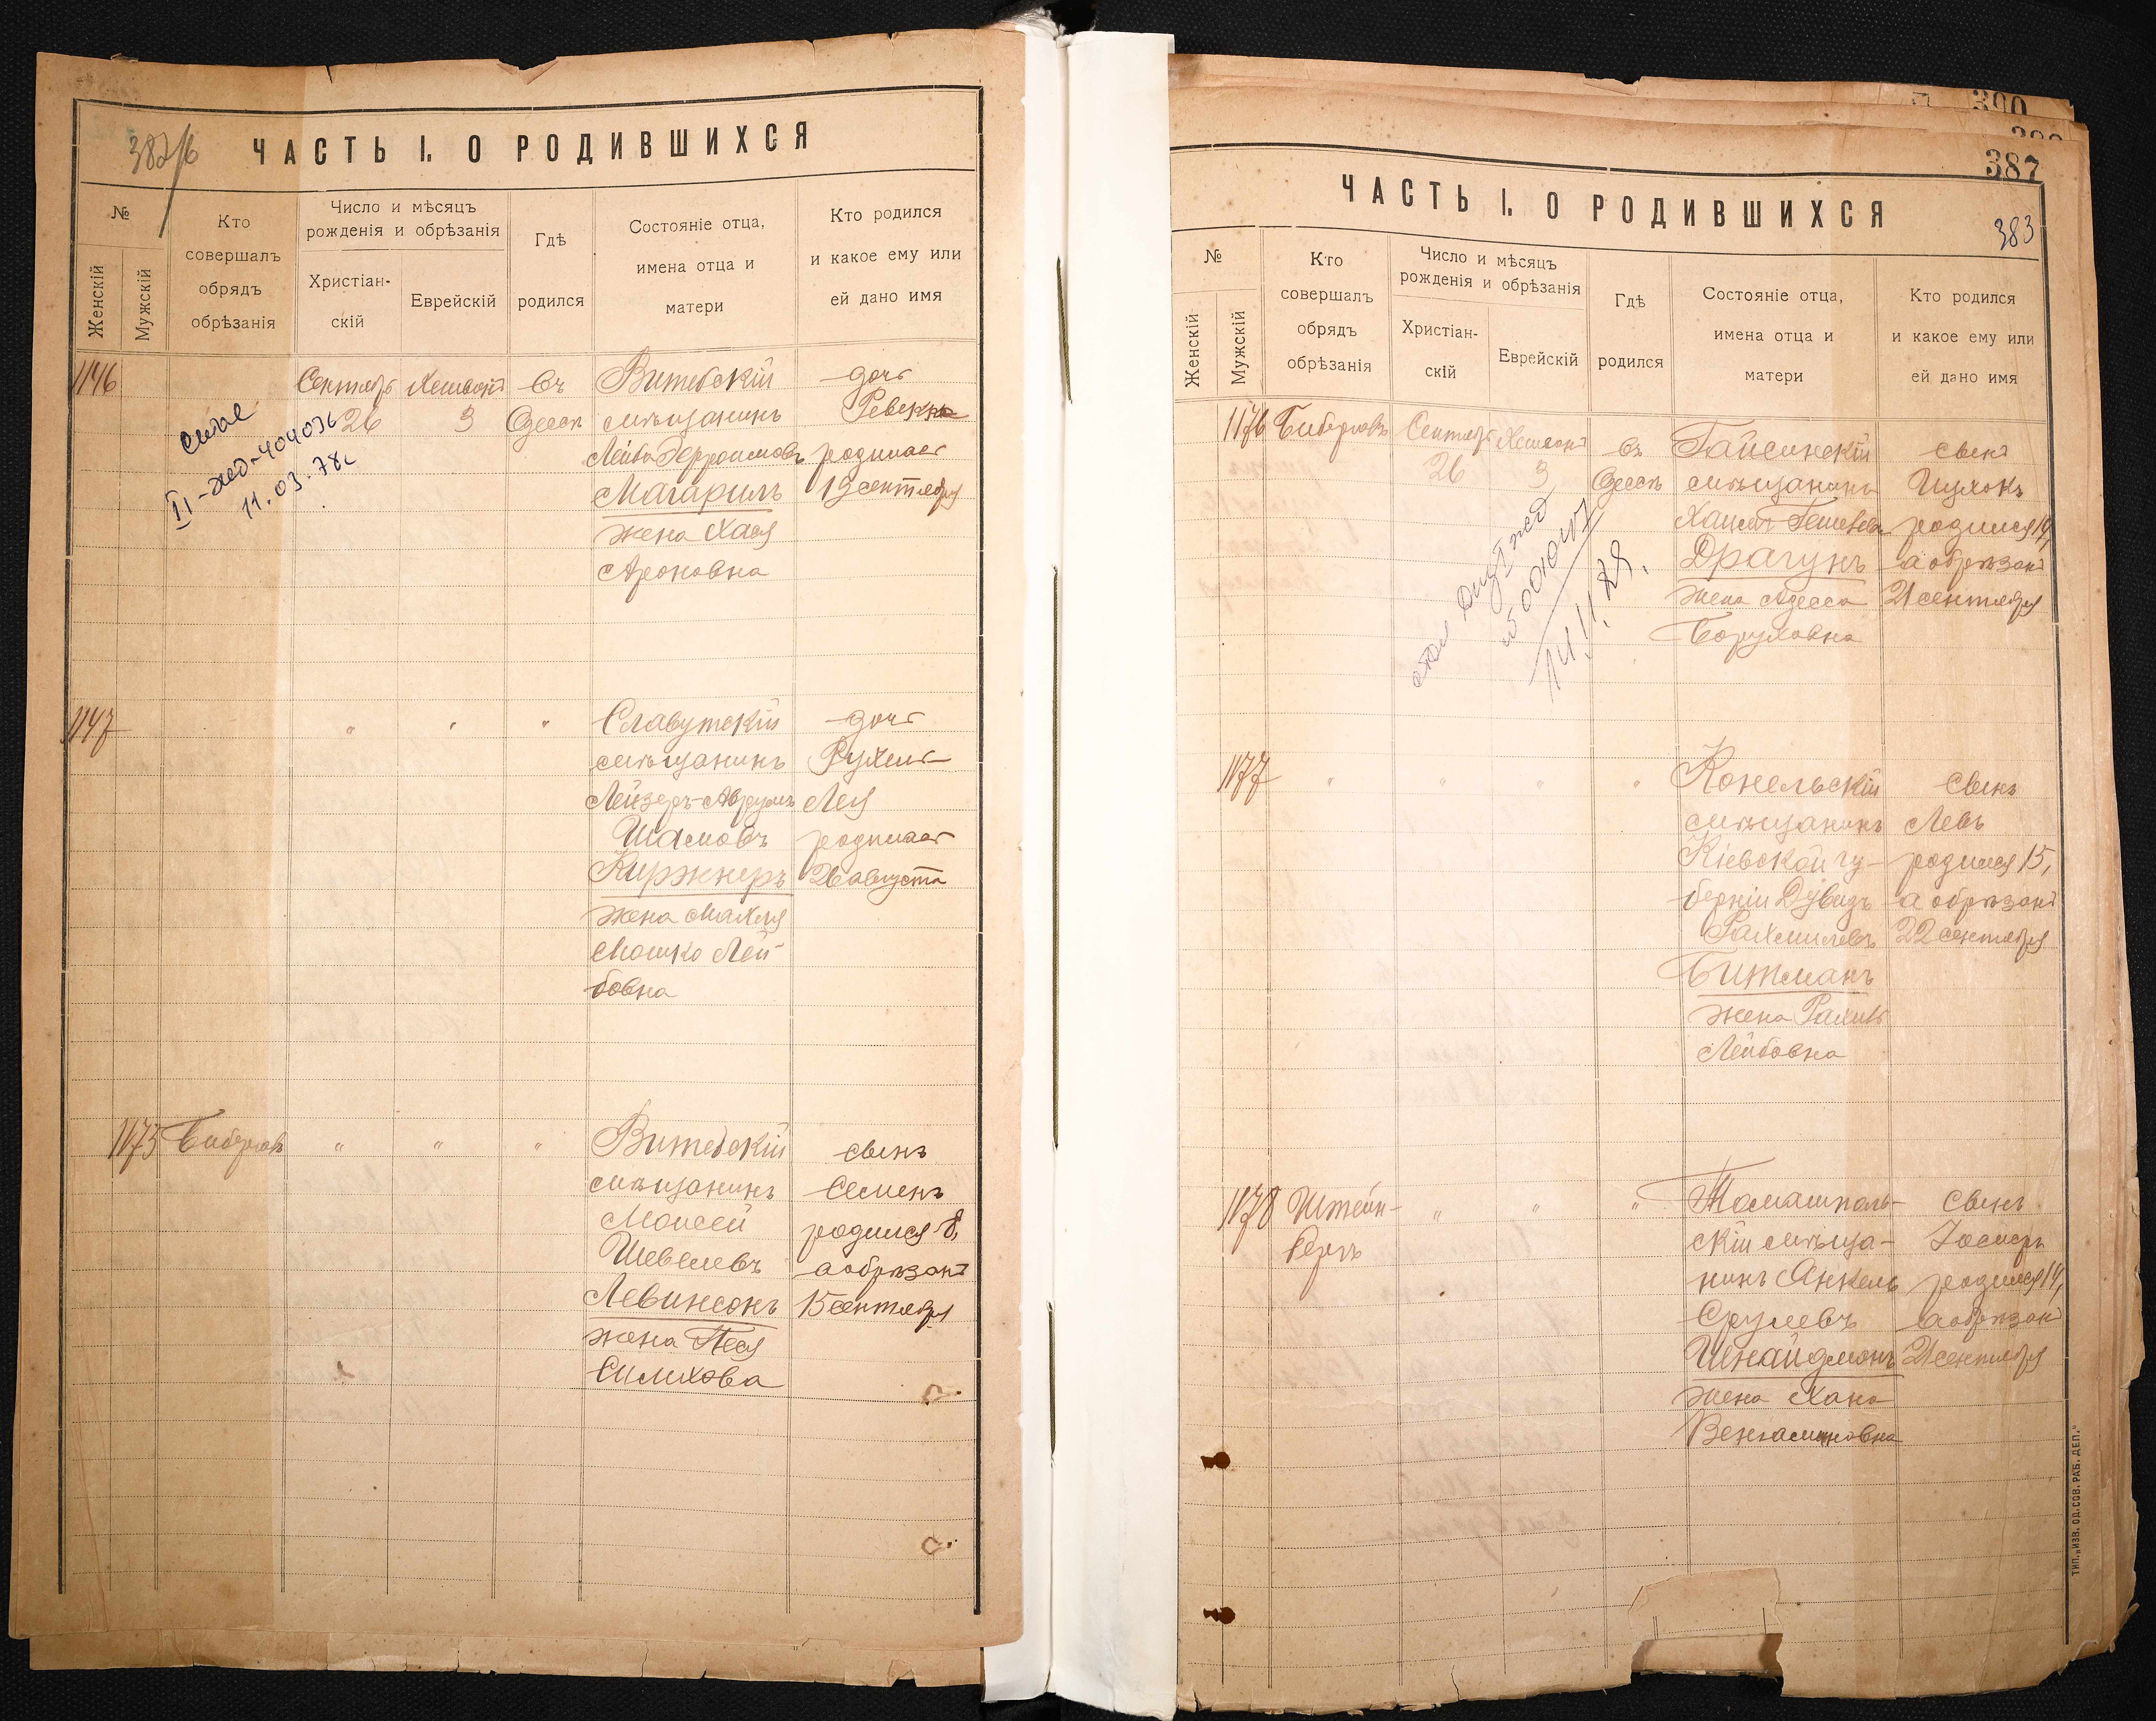 ЧАСТЬ I. О РОДИВШИХСЯ
№
Женскій
Мужскій
Кто совершалъ обрядъ обрѣзанія
Число и мѣсяцъ рожденія и обрѣзанія
Христіан-
скій
Еврейскій
Гдѣ родился
Состояніе отца, имена отца и матери
Кто родился и какое ему или ей дано имя
1146
Сентябрь
26
3
Въ
Одессѣ
Витебскій
мѣщанинъ
Лейба
Магарилъ
жена Хася
Ароновна
дочь
родилась
19 сентября
11.03.78г
1147
"
"
"
Славутскій
мѣщанинъ
Лейзеръ-Аврумъ
Шамовъ
Киржнеръ
жена Махля
Мошко Лей-
бовна
дочь
Рухель
Лея
родилась
26 августа
1175
"
"
"
Витебскій
мѣщанинъ
Моисей
Шевелевъ
Левинсонъ
жена Песя
дочь
сынъ
Семенъ
родился 8,
а обрѣзанъ
15 сентября
387
383
ЧАСТЬ I. О РОДИВШИХСЯ
№
Женскій
Мужскій
Кто совершалъ обрядъ обрѣзанія
Число и мѣсяцъ рожденія и обрѣзанія
Христіан-
скій
Еврейскій
Гдѣ родился
Состояніе отца, имена отца и матери
Кто родился и какое ему или ей дано имя
1176
Сентябрь
26
3
Въ
Одессѣ
Гайсинскій
мѣщанинъ
Драгунъ
жена
Боруховна
сынъ
родился 14,
а обрѣзанъ
21 сентября
1177
"
"
"
"
Конельскій
мѣщанинъ
Кіевской гу-
берніи Дувидъ
Рахмилевъ
Битманъ
жена Рахиль
Лейбовна
сынъ
Левъ
родился 15,
а обрѣзанъ
22 сентября
1178
Штейн-
бергъ
"
"
"
Томашполь-
скій мѣща-
нинъ Янкель
Срулевъ
Шнайдманъ
жена Хана
Веніаминовна
сынъ
Іосифъ
родился 14,
а обрѣзанъ
21 сентября
ТИП. „ИЗВ. ОД. СОВ. РАБ. ДЕП."